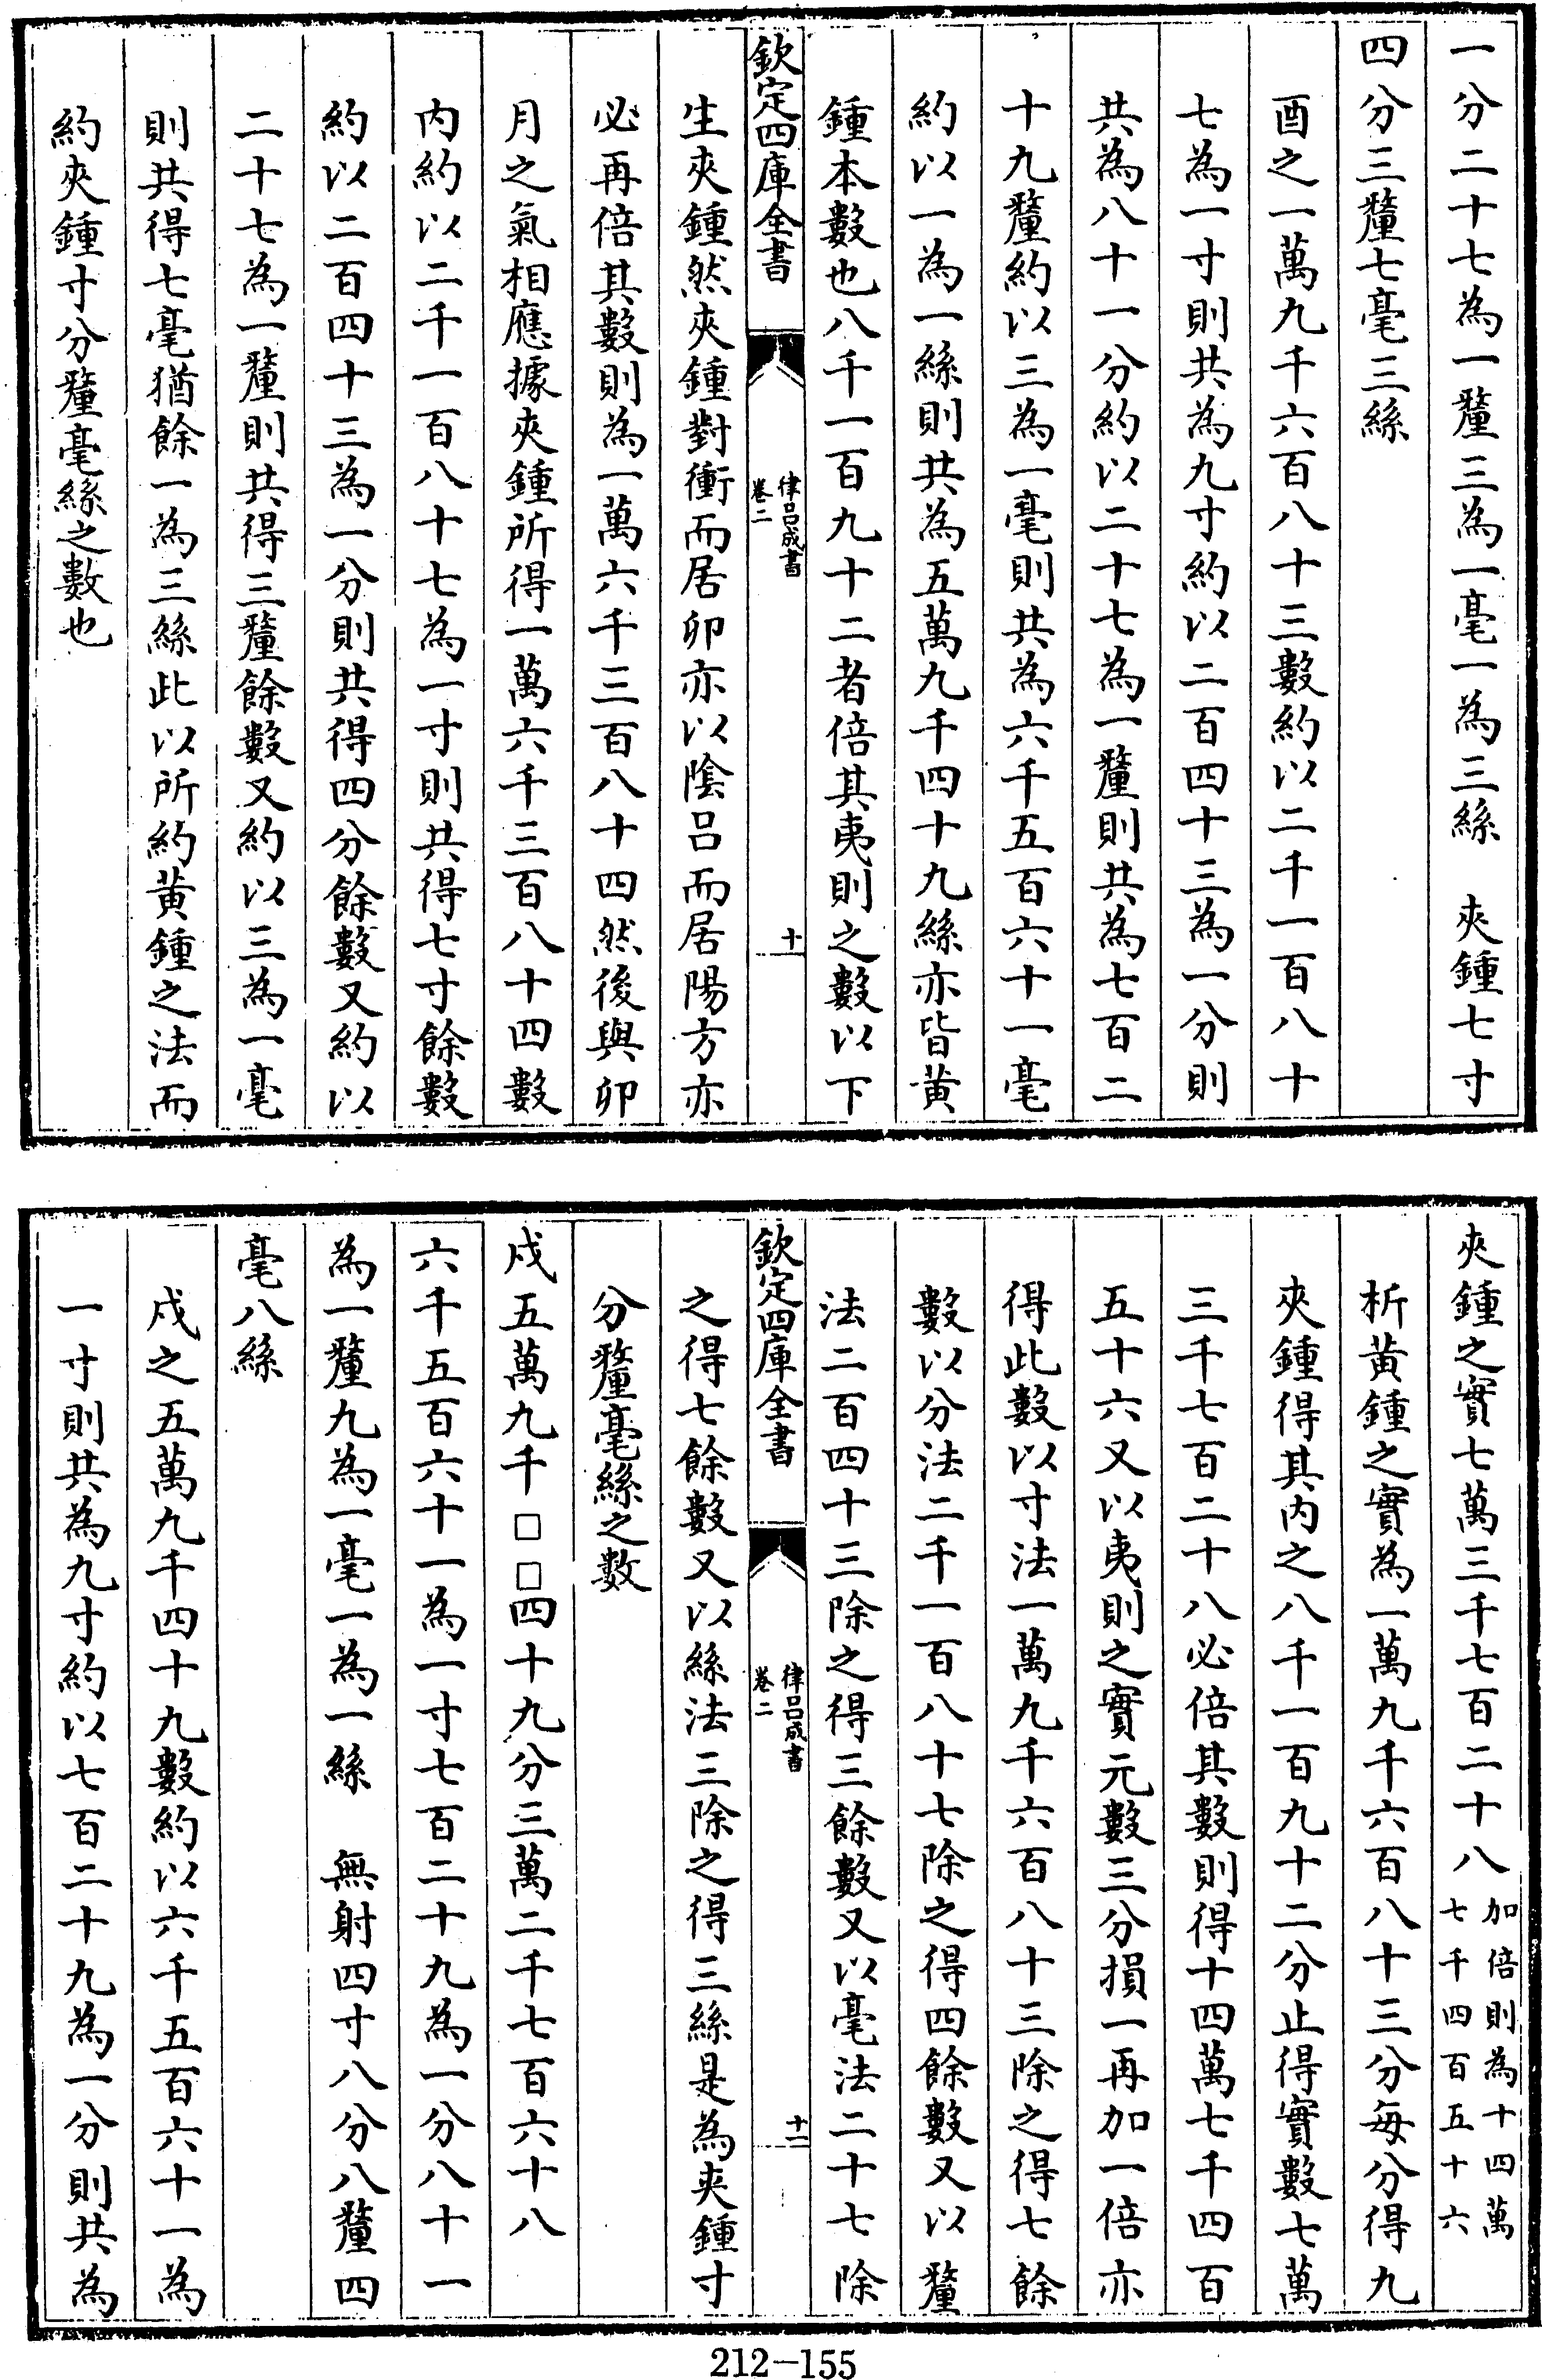 一分二十七為一釐三為一毫一為三絲　夾鍾七寸
四分三釐七毫三絲
酉之一萬九千六百八十三數約以二千一百八十
七為一寸則共為九寸約以二百四十三為一分則
共為八十一分約以二十七為一釐則共為七百二
十九釐約以三為一毫則共為六千五百六十一毫
約以一為一絲則共為五萬九千四十九絲亦皆黄
鍾本數也八千一百九十二者倍其夷則之數以下
欽定四庫全書
律呂成書
卷二
十
生夾鍾然夾鍾對衝而居卯亦以陰呂而居陽方亦
必再倍其數則為一萬六千三百八十四然後與卯
月之氣相應據夾鍾所得一萬六千三百八十四數
内約以二千一百八十七為一寸則共得七寸餘數
約以二百四十三為一分則共得四分餘數又約以
二十七為一釐則共得三釐餘數又約以三為一毫
則共得七毫猶餘一為三絲此以所約黄鍾之法而
約夾鍾寸分釐毫絲之數也
夾鍾之實七萬三千七百二十八加倍則為十四萬七千四百五十六
析黄鍾之實為一萬九千六百八十三分每分得九
夾鍾得其内之八千一百九十二分止得實數七萬
三千七百二十八必倍其數則得十四萬七千四百
五十六又以夷則之實元數三分損一再加一倍亦
得此數以寸法一萬九千六百八十三除之得七餘
數以分法二千一百八十七除之得四餘數又以釐
法二百四十三除之得三餘數又以毫法二十七除
欽定四庫全書
律呂成書
卷二
十一
之得七餘數又以絲法三除之得三絲是為夾鍾寸
分釐毫絲之数
戍五萬九千□□四十九分三萬二千七百六十八
六千五百六十一為一寸七百二十九為一分八十一
為一釐九為一毫一為一絲　無射四寸八分八釐四
毫八絲
戍之五萬九千四十九數約以六千五百六十一為
一寸則共為九寸約以七百二十九為一分則共為
212-155